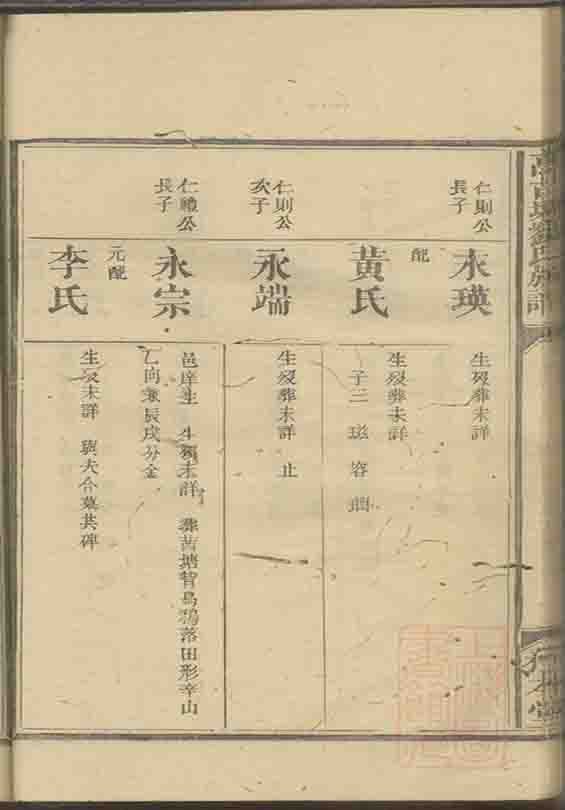 仁則公
長子
永瑛
生歿葬未詳
配
黃氏
生歿葬未詳
子三 容
仁則公
次子
永端
生歿葬未詳 止
仁禮公
長子
永宗
邑庠生 生歿未詳 葬苦塘背烏鴉落田形辛山
乙向兼辰戌分金
元配
李氏
生歿未詳 與夫合墓共碑
劉氏族譜